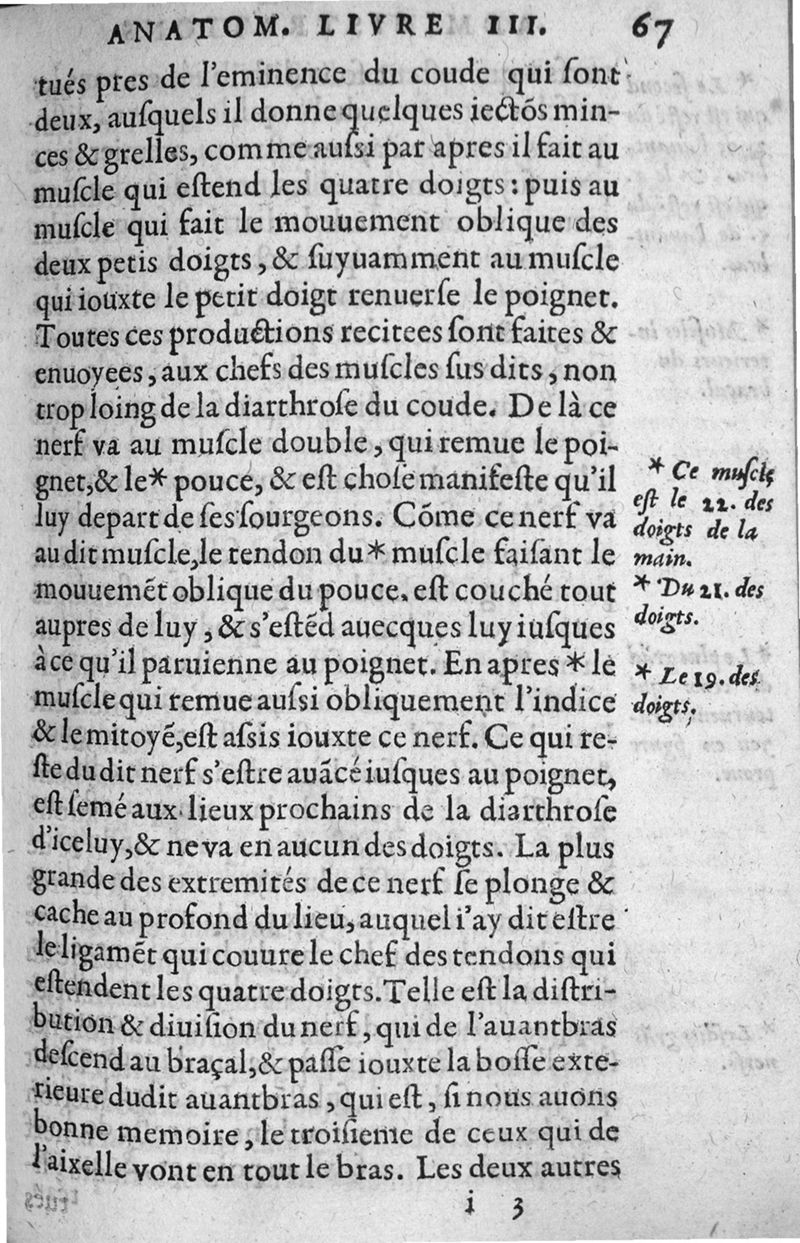 ANATOM. LIVRE III. 67
tués pres de l'eminence du coude qui ſont
deux, auſquels il donne quelques iectõs min-
ces & grelles, comme auſsi par apres il fait au
muſcle qui eſtend les quatre doigts : puis au
muſcle qui fait le mouuement oblique des
deux petis doigts, & ſuyuamment au muſcle
qui iouxte le petit doigt renuerſe le poignet.
Toutes ces productions recitees ſont faites &
enuoyees, aux chefs des muſcles ſus dits, non
trop loing de la diarthroſe du coude. De là ce
nerf va au muſcle double, qui remue le poi-
gnet, & le* pouce, & eſt choſe manifeſte qu'il
luy depart de ſes ſourgeons. Cõme ce nerf va
au dit muſcle, le tendon du* muſcle faiſant le
mouuemẽt oblique du pouce, eſt couché tout
aupres de luy, & s'eſtẽd auecques luy iuſques
à ce qu'il paruienne au poignet. En apres * le
muſcle qui remue auſsi obliquement l'indice
& le mitoyẽ, eſt aſsis iouxte ce nerf. Ce qui re-
ſte du dit nerf s'eſtre auãcé iuſques au poignet,
eſt ſemé aux lieux prochains de la diarthroſe
d'iceluy, & ne va en aucun des doigts. La plus
grande des extremités de ce nerf ſe plonge &
cache au profond du lieu, auquel i'ay dit eſtre
le ligamẽt qui couure le chef des tendons qui
eſtendent les quatre doigts. Telle eſt la diſtri-
bution & diuiſion du nerf, qui de l'auantbras
deſcend au braçal, & paſſe iouxte la boſſe exte-
rieure dudit auantbras, qui eſt, ſi nous auons
bonne memoire, le troiſieme de ceux qui de
l'aixelle vont en tout le bras. Les deux autres
i 3
* Ce muſcle
eſt le 22. des
doigts de la
main.
* Du 21. des
doigts.
* Le 19. des
doigts.